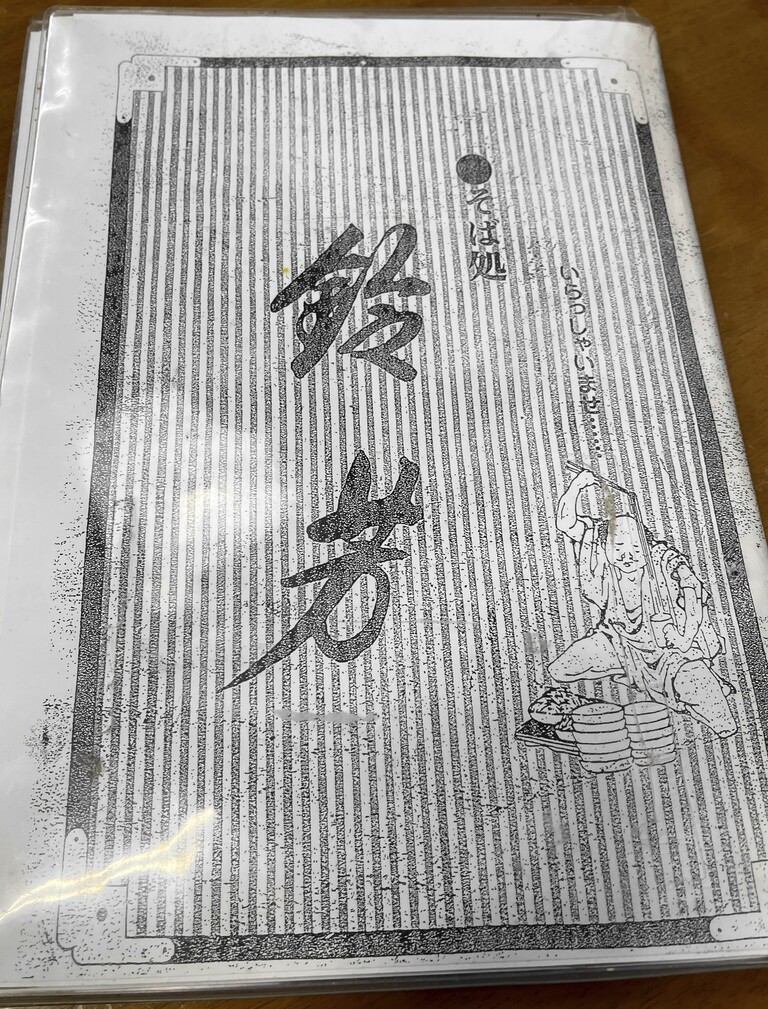 いらっしゃいませ………
●そば処
鈴芳